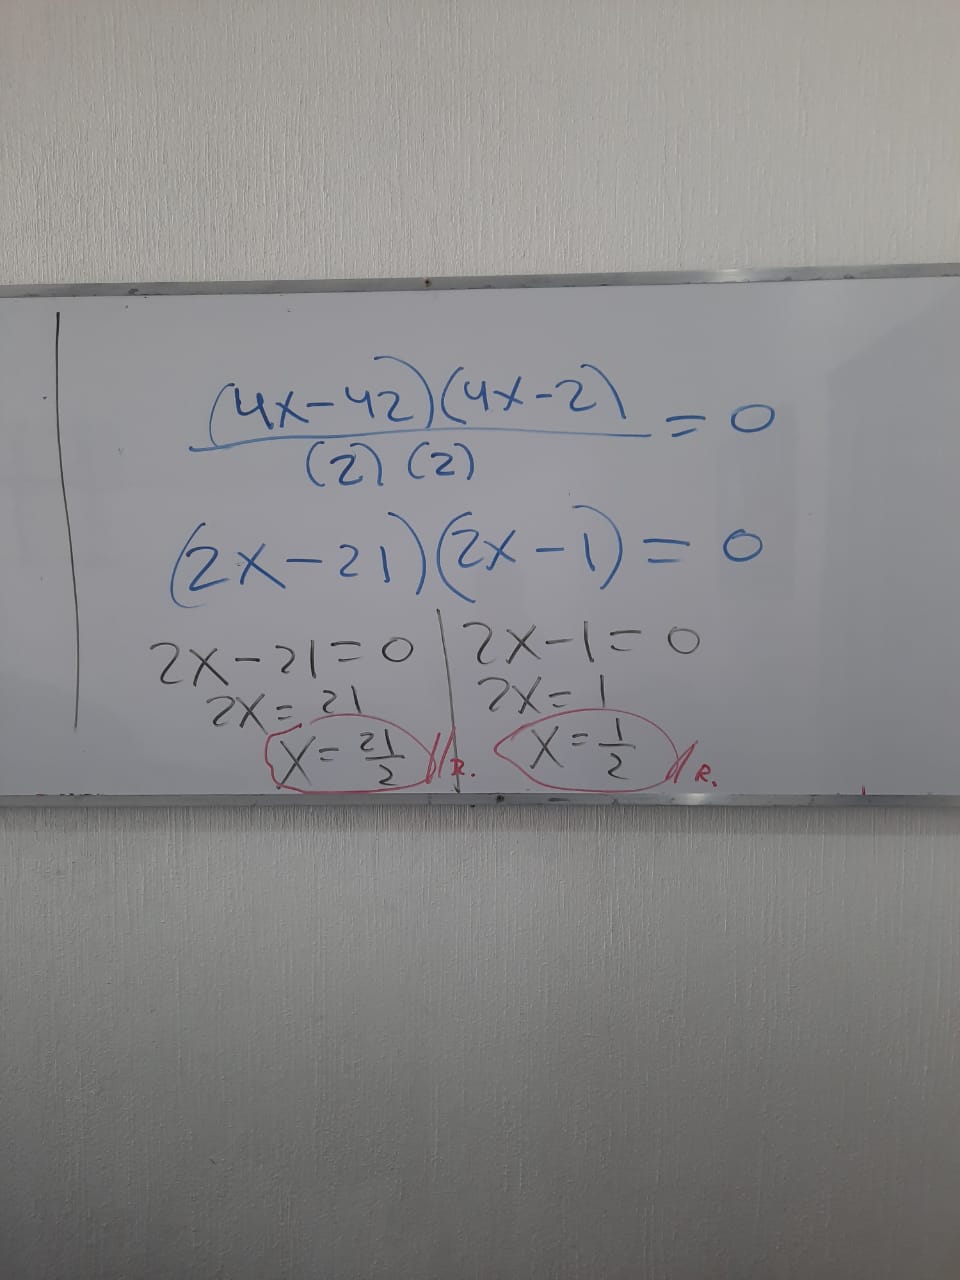 (4x-42)(4x-2)
(2)(2) = 0
(2x-21)(2x-1)=0
2x-21=0 2x-1=0
2x=21 2x=1
x=21/2 //R. x=1/2 //R.